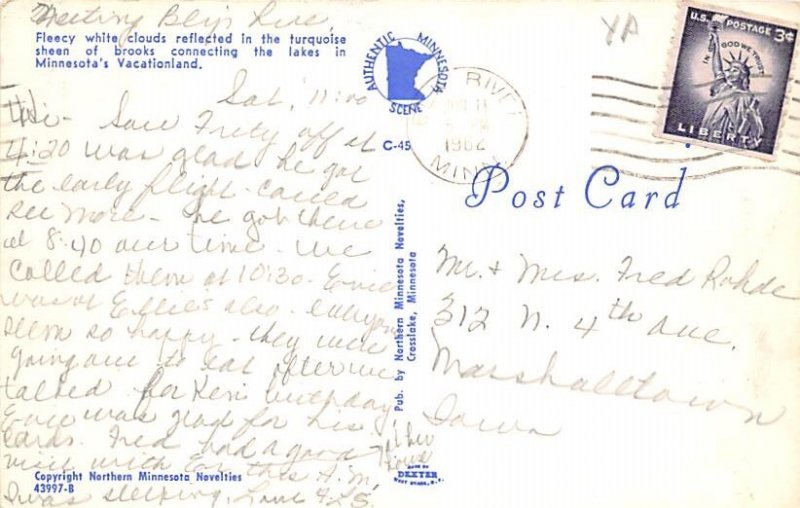 Fleecy white clouds reflected in the turquoise
sheen of brooks connecting the lakes in
Minnesota's Vacationland.
AUTHENTIC MINNESOTA
SCENE
C-45
RIVER
1962
MINN.
U.S. POSTAGE 3¢
IN GOD WE TRUST
LIBERTY
Post Card
Sat, 11:00
Hi - Saw off at
4:20 was glad he got
the early flight - called
- he got there
at 8:40 our time - we
called them at 10:30.
was at also -
seem so happy - they were
going out to eat after we
talked for Ken's birthday
was glad for his
cards. Fred had a good
visit with this A.M.
I was sleeping. Love
Mr. & Mrs. Fred Rohde
312 N. 4th Ave.
Marshalltown
Iowa
Pub. by Northern Minnesota Novelties,
Crosslake, Minnesota
Copyright Northern Minnesota Novelties
43997-B
MADE BY
DEXTER
WEST NYACK, N.Y.